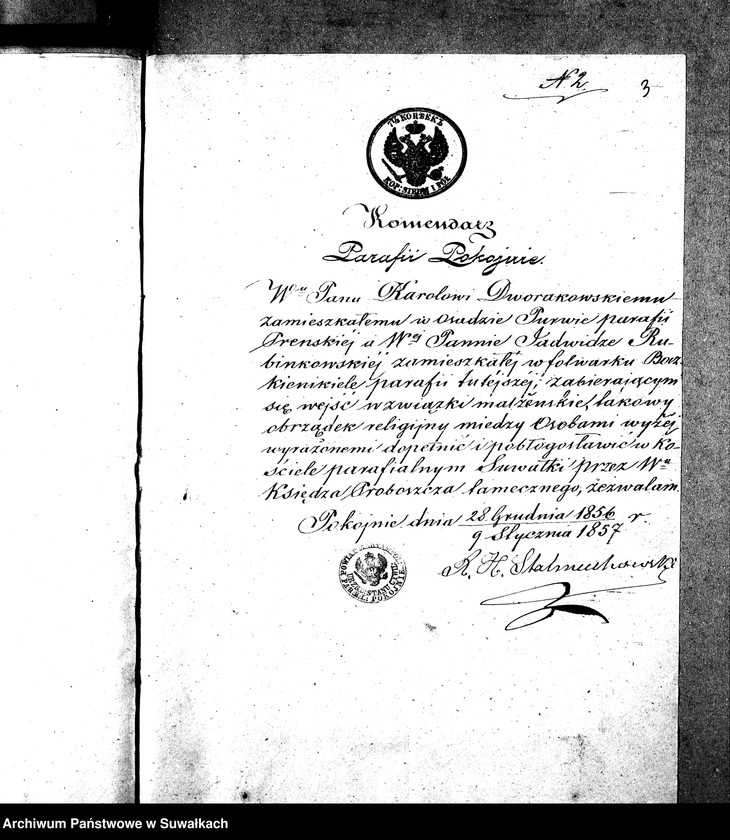 N. 2.
3
7½ КОПѢЕКЪ
KOP: SIEDM I PÓŁ
Komendarz
Parafii Pokojnie.
Wmu Panu Karolowi Dworakowskiemu
zamieszkałemu w osadzie Purwie parafii
Prenskiéj a Wéj Pannie Jadwidze Ru-
binkowskiéj zamieszkałéj w folwarku
kienikiele parafii tutéjszéj, zabierającym
się wejść w związki małżeńskie, takowy
obrządek religijny między Osobami wyżéj
wyrażonemi dopełnić i pobłogosławić w Ko-
ściele parafialnym Suwałki przez Wo
Księdza Proboszcza tamecznego, zezwalam.
Pokojnie dnia 28 Grudnia 1856 r.
9 Stycznia 1857
K. H.
PARAFII: POKOJNIE
Archiwum Państwowe w Suwałkach